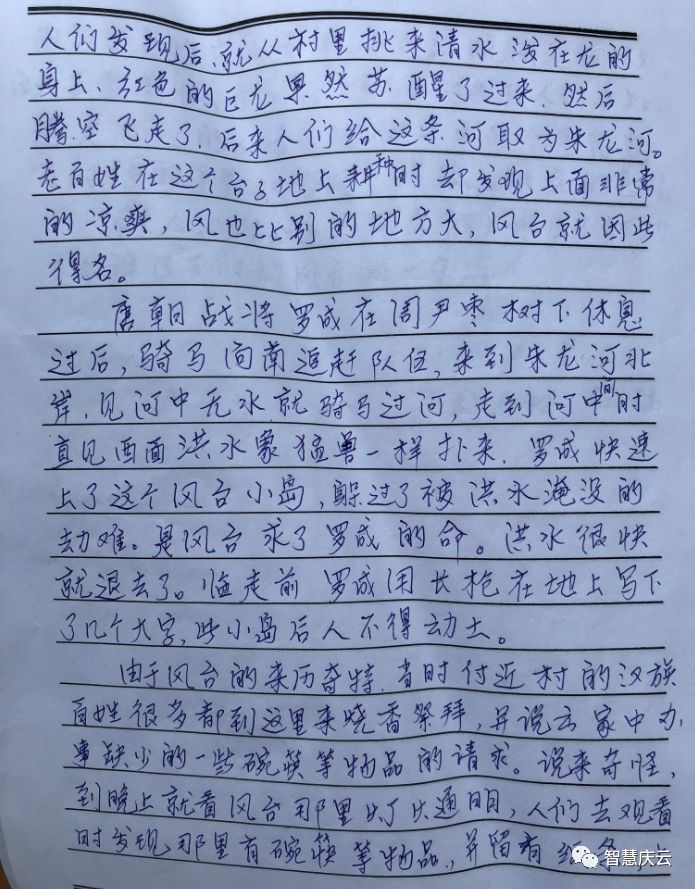 人们发现后,就从村里挑来清水泼在龙的
身上、红色的巨龙果然苏醒了过来、然后
腾空飞走了,后来人们给这条河取为朱龙河。
老百姓在这个台子地上耕种时却发现上面非常
的凉爽，风也比别的地方大，风台就因此
得名。
唐朝战将罗成在周尹枣树下休息
过后，骑马向南追赶队伍，来到朱龙河北
岸，见河中无水就骑马过河，走到河中间时
直见西面洪水象猛兽一样扑来，罗成快速
上了这个风台小岛，躲过了被洪水淹没的
劫难。是风台求了罗成的命。洪水很快
就退去了。临走前罗成用长枪在地上写下
了几个大字，此小岛后人不得动土。
由于风台的来历奇特，当时付近村的汉族
百姓很多都到这里来烧香祭拜，并说云家中办
事缺少的一些碗筷等物品的请求。说来奇怪，
到晚上就看风台那里灯火通明，人们去观看
时发现那里有碗筷等物品，并留有
智慧庆云